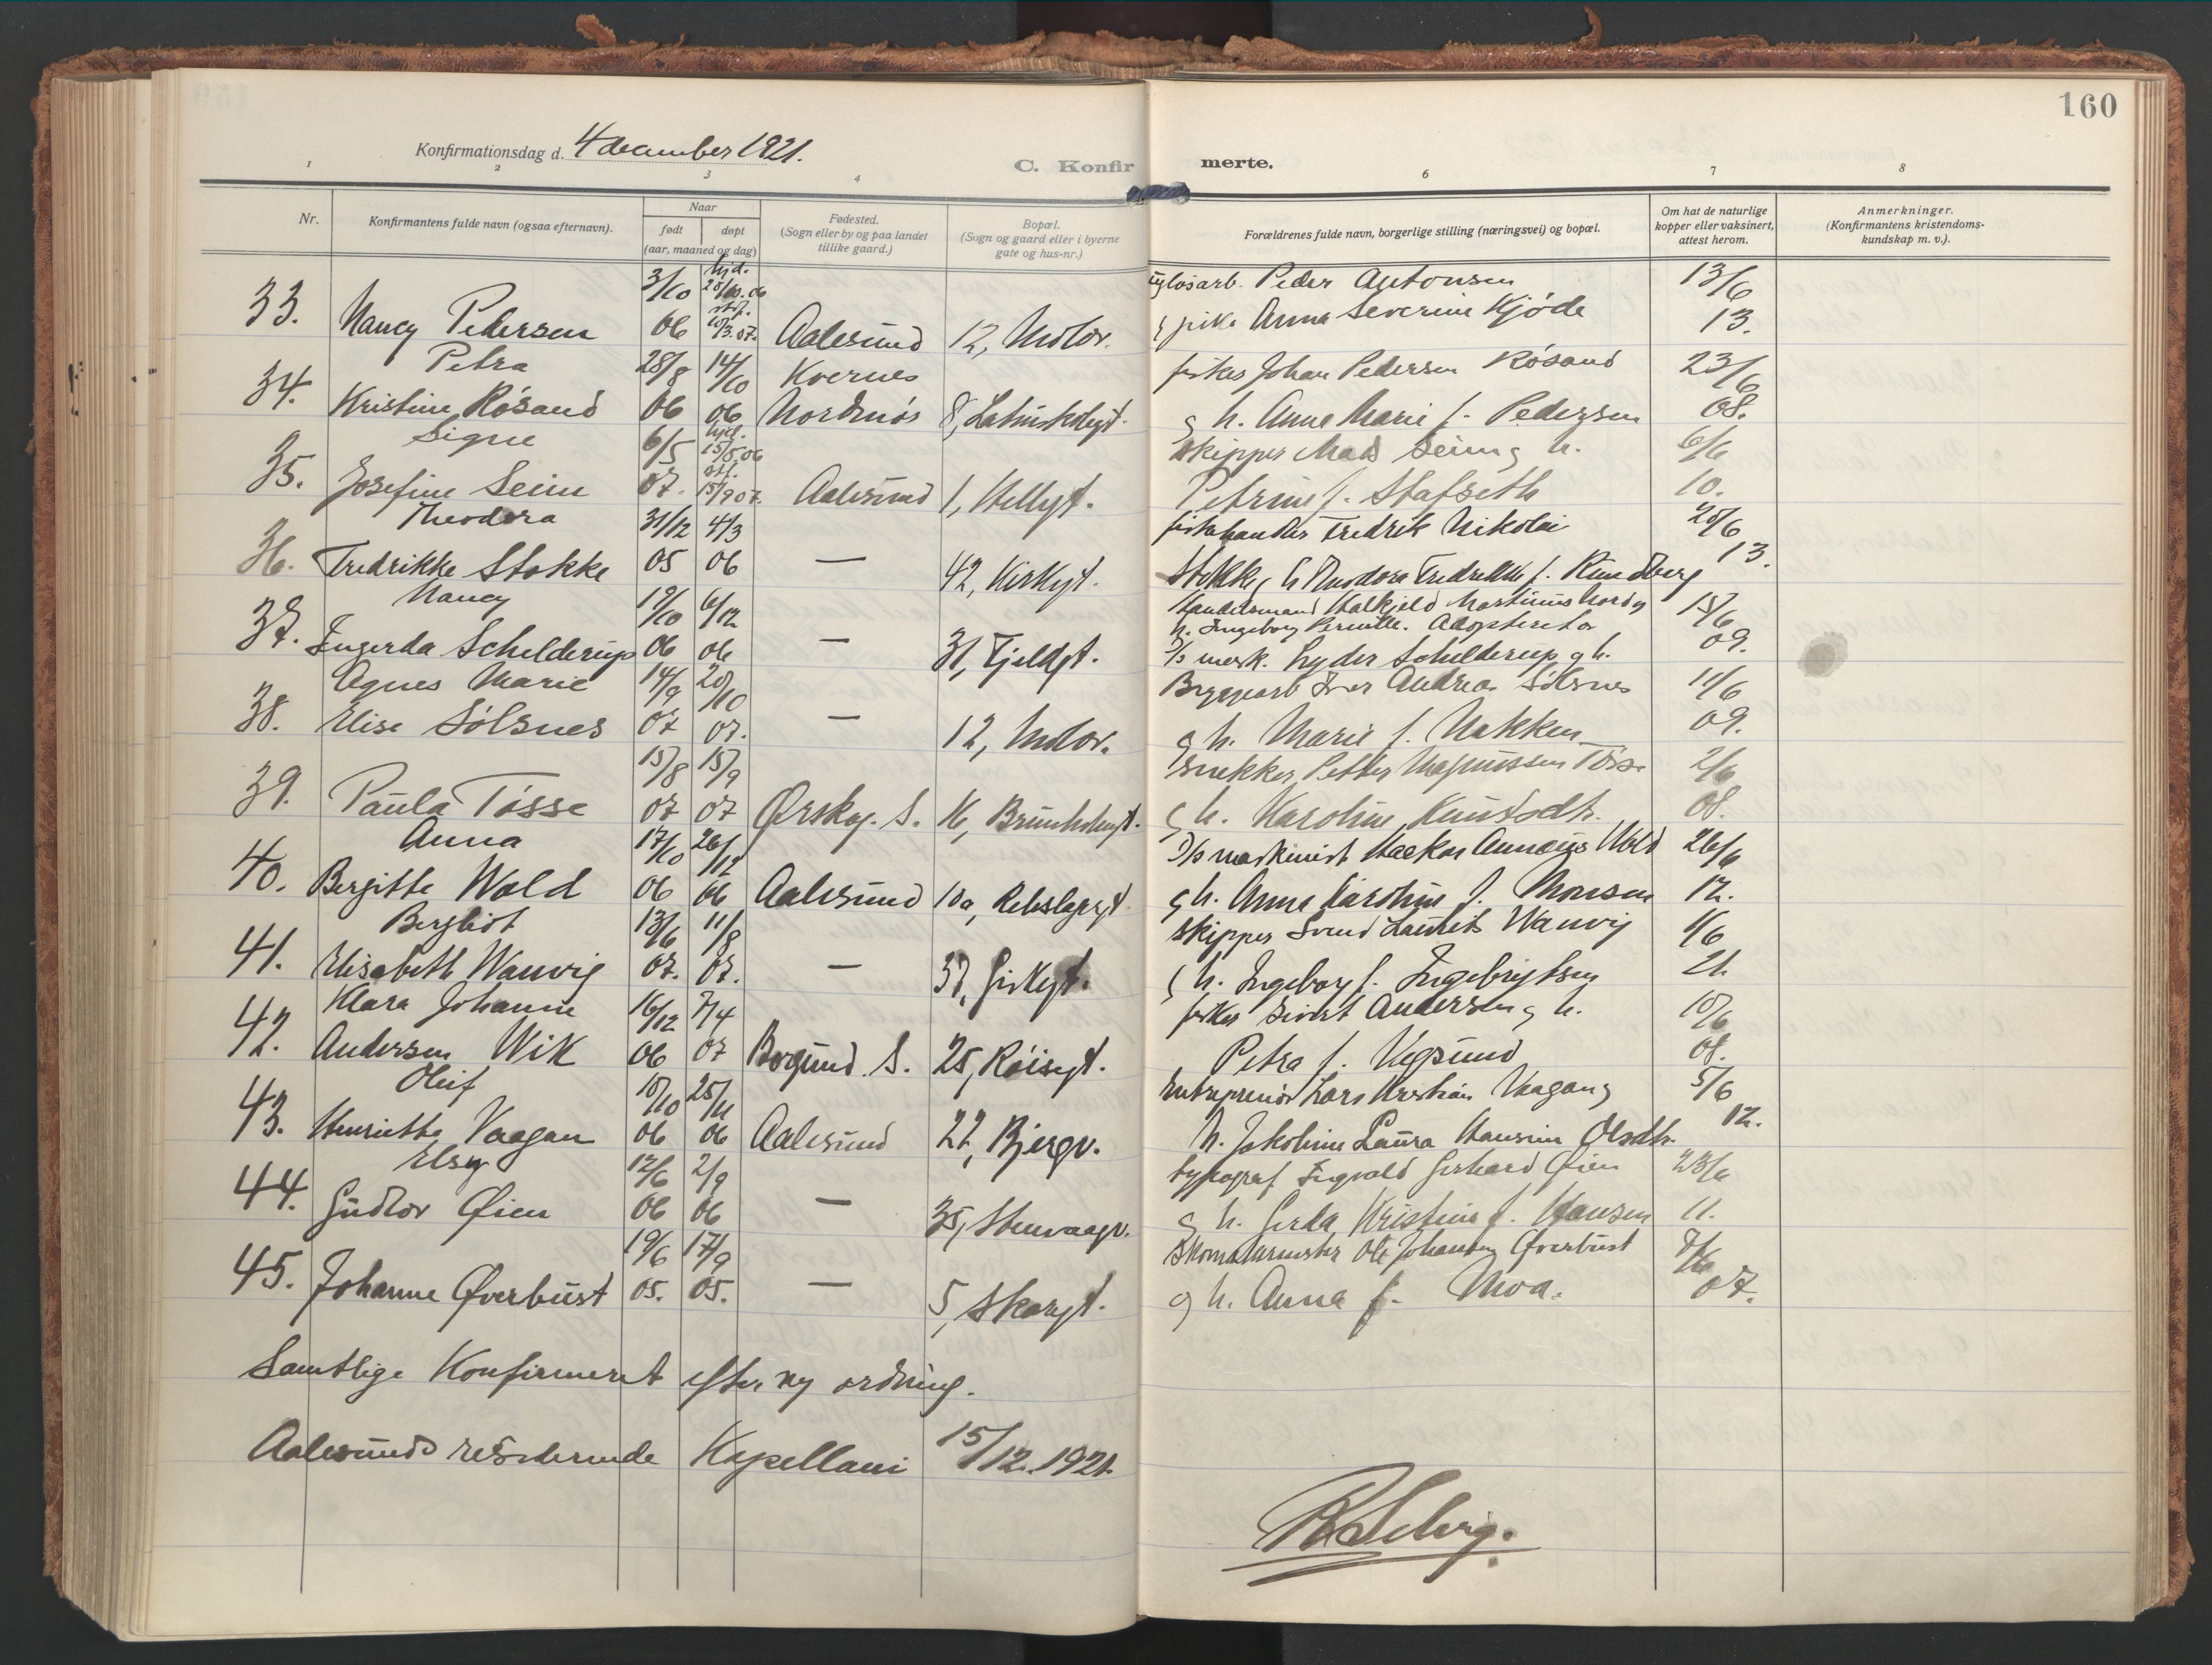 160
Konfirmationsdag d. 4 december 1921.
C. Konfirmerte.
1 2 3 4 6 7 8
Nr.
Konfirmantens fulde navn (ogsaa efternavn).
Naar
født døpt
(aar, maaned og dag)
Fødested.
(Sogn eller by og paa landet
tillike gaard.)
Bopæl.
(Sogn og gaard eller i byerne
gate og hus-nr.)
Forældrenes fulde navn, borgerlige stilling (næringsvei) og bopæl.
Om hat de naturlige
kopper eller vaksinert,
attest herom.
Anmerkninger.
(Konfirmantens kristendoms-
kundskap m. v.).
3/10 hjd. 28/10.06 Peder Antonsen 13/6
33. Nancy Pedersen 06 10/3.07. Aalesund 12, Nedor. pike Anna Severine Kjøde 13.
Petra 28/8 14/10 Kvernes fisker Johan Pedersen Røsand 23/6
34. Kristine Røsand 06 06 Nordmør 8, Latinskolegt. g h. Anne Marie f. Pedersen 08.
Signe 6/5 hjd. 15/5.06 skipper Mads Seim g h. 6/6
35. Josefine Seim 07. 15/9 07. Aalesund 1, Hellegt. Petrine f. Stafseth 10.
Theodora 31/12 4/3 fiskehandler Fredrik Nikolai 20/6
36. Fredrikke Stokke 05 06 — 42, Kirkegt. Stokke g h Theodora Fredrikke f. Rundberg 13.
Nancy 19/10 6/12 Handelsmand Halkjeld Martinus Nord g 15/6
37. Ingerda Schelderup 06 06 — 31, Fjeldgt. h. Ingeborg Pernille. Adopteret av 09.
D/s mask. Lyder Schelderup g h.
Agnes Marie 14/9 20/10 Andreas Sølsnes 11/6
38. Elise Sølsnes 07 07. — 12, Nedor. g h. Marie f. Nakken 09.
15/8 15/9 snekker Petter Magnussen Tøsse 2/6
39. Paula Tøsse 07 07 Ørskog. S. 16, Brunholmgt. g h. Karoline Knutsdtr. 08.
Anna 17/10 26/12 D/s maskinist Haakon Annæus Wold 26/6
40. Bergitte Wold 06 06 Aalesund 10a, Rebslagergt. g h. Anna Karoline f. Monsen 12.
Bergliot 13/6 11/8 skipper Svend Lauritz Wanvig 1/6
41. Elisabeth Wanvig 07. 07. — 37, Giskegt. g h. Ingeborg f. Ingebrigtsen 21.
Klara Johanne 16/12 7/4 fisker Sivert Andersen g h. 10/6
42. Andersen Wik 06 07 Borgund S. 25, Røisegt. Petra f. Vegsund 08.
Oluf 10/10 25/11 Entreprenør Lars Kristian Vaagan g 5/6
43. Henriette Vaagan 06 06 Aalesund 22, Bjergv. h. Jakobine Laura Hansine Olsdtr. 12.
Elsy 12/6 2/9 typograf Ingvald Gerhard Øien 23/6
44. Gudlov Øien 06 06 — 35, Stenvaagv. g h. Gerda Kristine f. Hansen 11.
19/6 17/9 Skomakermester Ole Johansen Øverbust 7/6
45. Johanne Øverbust 05. 05. — 5, Skaregt. g h. Anna f. Moa. 07.
Samtlige Konfirmeret efter ny ordning.
Aalesunds residerende Kapellani 15/12.1921.